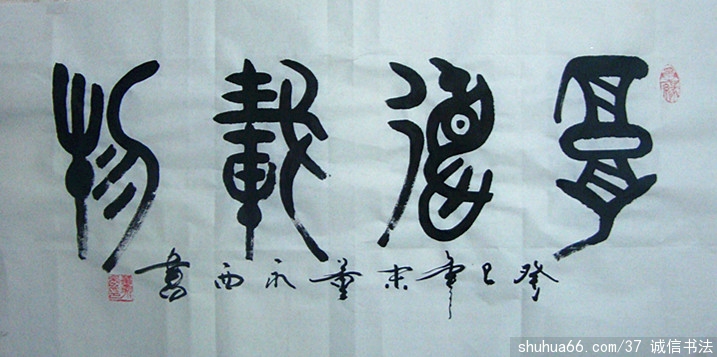 厚德載物
癸巳年末董永西書
shuhua66.com/37 诚信书法